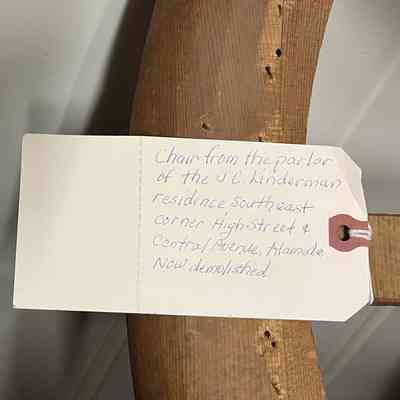 Chair from the parlor
of the J.C. Linderman
residence, Southeast
corner High Street &
Central Avenue, Alameda
Now demolished